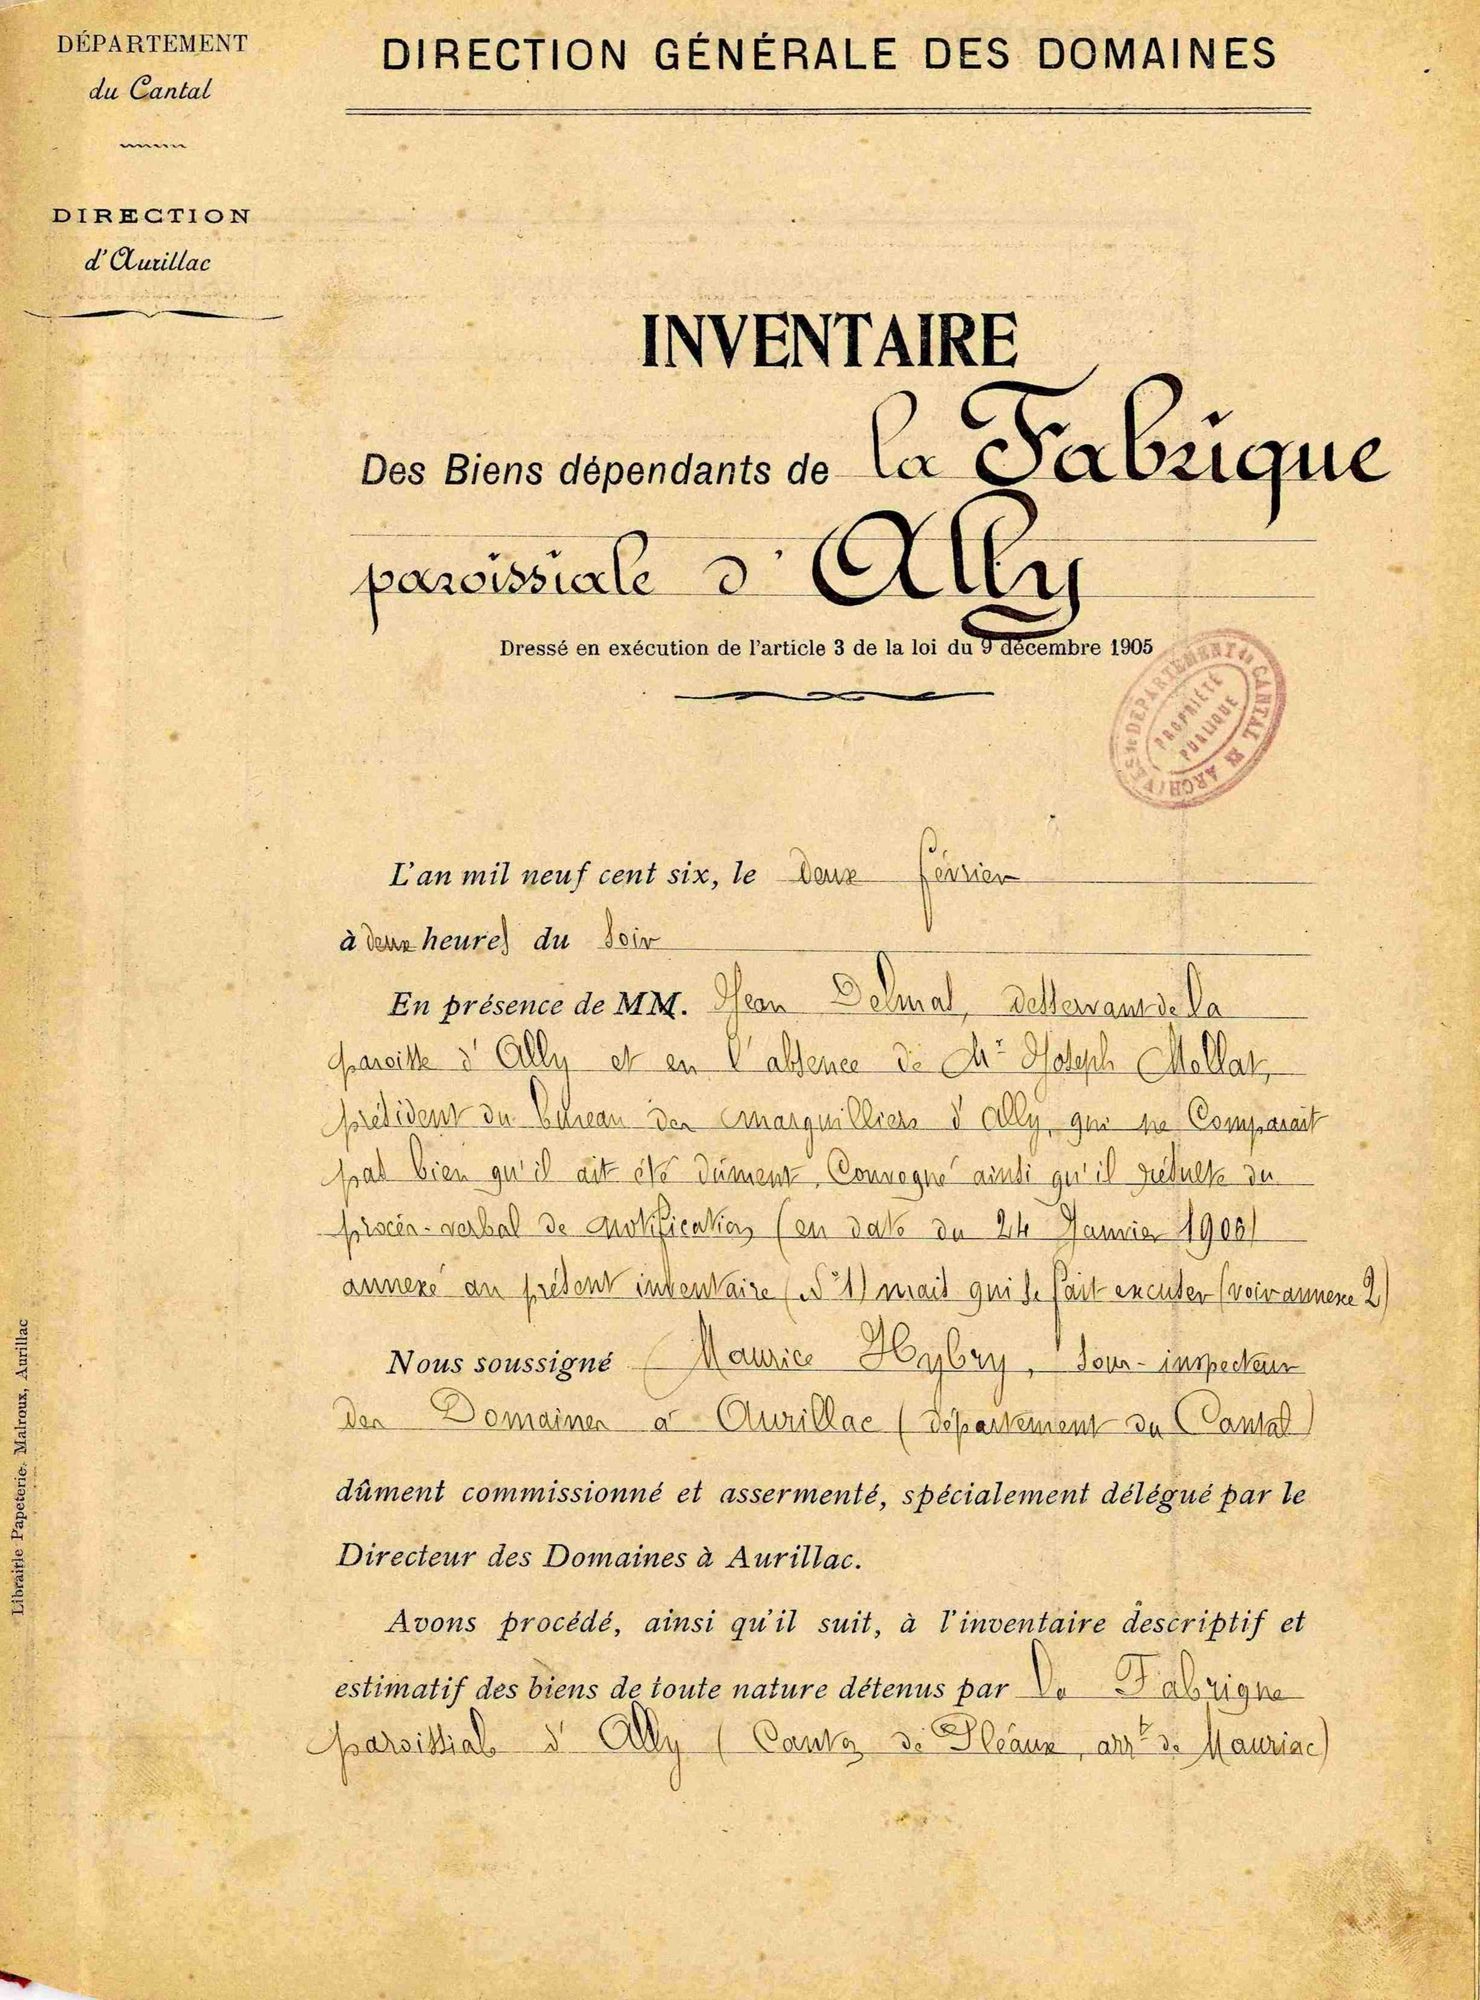 DÉPARTEMENT
du Cantal
DIRECTION
d'Aurillac
DIRECTION GÉNÉRALE DES DOMAINES
INVENTAIRE
Des Biens dépendants de la Fabrique
paroissiale d'Ally
Dressé en exécution de l'article 3 de la loi du 9 décembre 1905
ARCHIVES du DÉPARTEMENT du CANTAL
PROPRIÉTÉ
PUBLIQUE
L'an mil neuf cent six, le deux février
à deux heures du soir
En présence de MM. Jean Delmas, desservant de la
paroisse d'Ally et en l'absence de Mr Joseph Mollat,
président du bureau des marguilliers d'Ally, qui ne comparait
pas bien qu'il ait été dûment convoqué ainsi qu'il résulte du
procès-verbal de notification (en date du 24 Janvier 1906)
annexé au présent inventaire (N° 1) mais qui se fait excuser (voir annexe 2)
Nous soussigné Maurice Hybry, sous-inspecteur
des Domaines à Aurillac (département du Cantal)
dûment commissionné et assermenté, spécialement délégué par le
Directeur des Domaines à Aurillac.
Avons procédé, ainsi qu'il suit, à l'inventaire descriptif et
estimatif des biens de toute nature détenus par la Fabrique
paroissiale d'Ally (Canton de Pléaux, arrt de Mauriac)
Librairie Papeterie Malroux, Aurillac